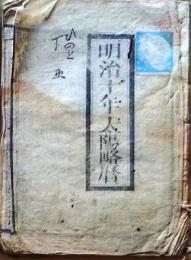 明治十年太陽略暦
ひのと
丁丑